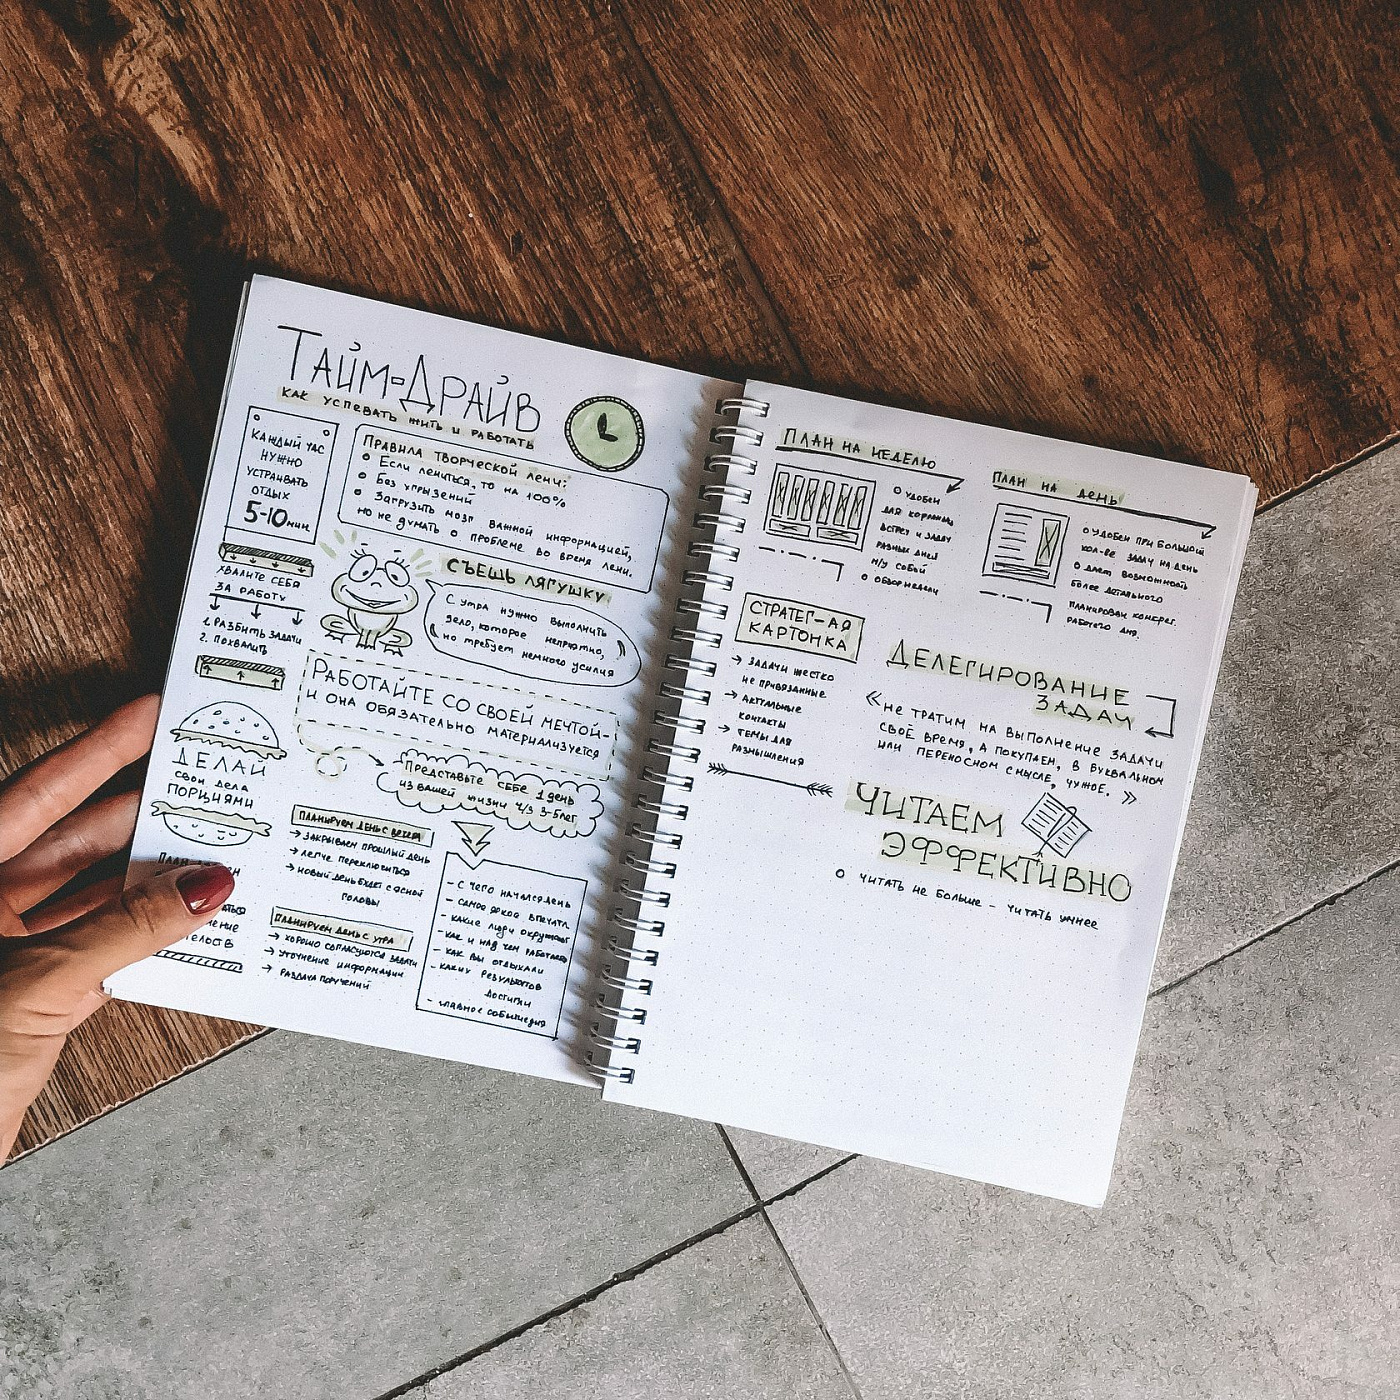 ТАЙМ-ДРАЙВ
КАК УСПЕВАТЬ ЖИТЬ И РАБОТАТЬ
КАЖДЫЙ ЧАС
НУЖНО
УСТРАИВАТЬ
ОТДЫХ
5-10 мин
ПРАВИЛА ТВОРЧЕСКОЙ ЛЕНИ:
ЕСЛИ ЛЕНИТЬСЯ, ТО НА 100%
БЕЗ УГРЫЗЕНИЙ
ЗАГРУЗИТЬ МОЗГ ВАЖНОЙ ИНФОРМАЦИЕЙ,
НО НЕ ДУМАТЬ О ПРОБЛЕМЕ ВО ВРЕМЯ ЛЕНИ.
ХВАЛИТЕ СЕБЯ
ЗА РАБОТУ
1. РАЗБИТЬ ЗАДАЧИ
2. ПОХВАЛИТЬ
СЪЕШЬ ЛЯГУШКУ
С УТРА НУЖНО ВЫПОЛНИТЬ
ДЕЛО, КОТОРОЕ НЕПРИЯТНО,
НО ТРЕБУЕТ НЕМНОГО УСИЛИЯ
РАБОТАЙТЕ СО СВОЕЙ МЕЧТОЙ-
И ОНА ОБЯЗАТЕЛЬНО МАТЕРИАЛИЗУЕТСЯ
ДЕЛАЙ
СВОИ ДЕЛА
ПОРЦИЯМИ
ПРЕДСТАВЬТЕ СЕБЕ 1 ДЕНЬ
ИЗ ВАШЕЙ ЖИЗНИ Ч/З 3-5 ЛЕТ
ПЛАНИРУЕМ ДЕНЬ С ВЕЧЕРА
→ ЗАКРЫВАЕМ ПРОШЛЫЙ ДЕНЬ
→ ЛЕГЧЕ ПЕРЕКЛЮЧИТЬСЯ
→ НОВЫЙ ДЕНЬ БУДЕТ С ЯСНОЙ
ГОЛОВЫ
ПЛАНИРУЕМ ДЕНЬ С УТРА
→ ХОРОШО СОГЛАСУЮТСЯ ЗАДАЧИ
→ УТОЧНЕНИЕ ИНФОРМАЦИИ
→ РАЗДАЧА ПОРУЧЕНИЙ
- С ЧЕГО НАЧАЛСЯ ДЕНЬ
- САМОЕ ЯРКОЕ ВПЕЧАТЛ.
- КАКИЕ ЛЮДИ ОКРУЖАЮТ
- КАК И НАД ЧЕМ РАБОТАЕТЕ
- КАК ВЫ ОТДЫХАЛИ
- КАКИХ РЕЗУЛЬТАТОВ
ДОСТИГЛИ
- ГЛАВНОЕ СОБЫТИЕ ДНЯ
ПЛАН НА НЕДЕЛЮ
УДОБЕН
ВСТРЕЧ И ЗАДАЧ
РАЗНЫХ ДНЕЙ
М/У СОБОЙ
ОБЗОР НЕДЕЛИ
ПЛАН НА ДЕНЬ
УДОБЕН ПРИ БОЛЬШОМ
КОЛ-ВЕ ЗАДАЧ НА ДЕНЬ
ДАЕТ ВОЗМОЖНОСТЬ
БОЛЕЕ ДЕТАЛЬНОГО
ПЛАНИРОВАН КОНКРЕТ.
РАБОЧЕГО ДНЯ.
СТРАТЕГ-АЯ
КАРТОНКА
→ ЗАДАЧИ ЖЕСТКО
НЕ ПРИВЯЗАННЫЕ
→ АКТУАЛЬНЫЕ
КОНТАКТЫ
→ ТЕМЫ ДЛЯ
РАЗМЫШЛЕНИЯ
ДЕЛЕГИРОВАНИЕ
ЗАДАЧ
«НЕ ТРАТИМ НА ВЫПОЛНЕНИЕ ЗАДАЧИ
СВОЁ ВРЕМЯ, А ПОКУПАЕМ, В БУКВАЛЬНОМ
ИЛИ ПЕРЕНОСНОМ СМЫСЛЕ, ЧУЖОЕ.»
ЧИТАЕМ
ЭФФЕКТИВНО
ЧИТАТЬ НЕ БОЛЬШЕ - ЧИТАТЬ УМНЕЕ